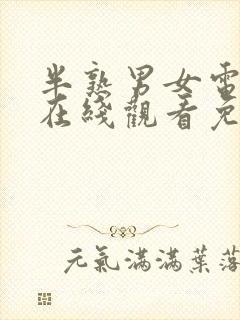 半熟男女電
在綫觀看免
元氣滿滿葉落